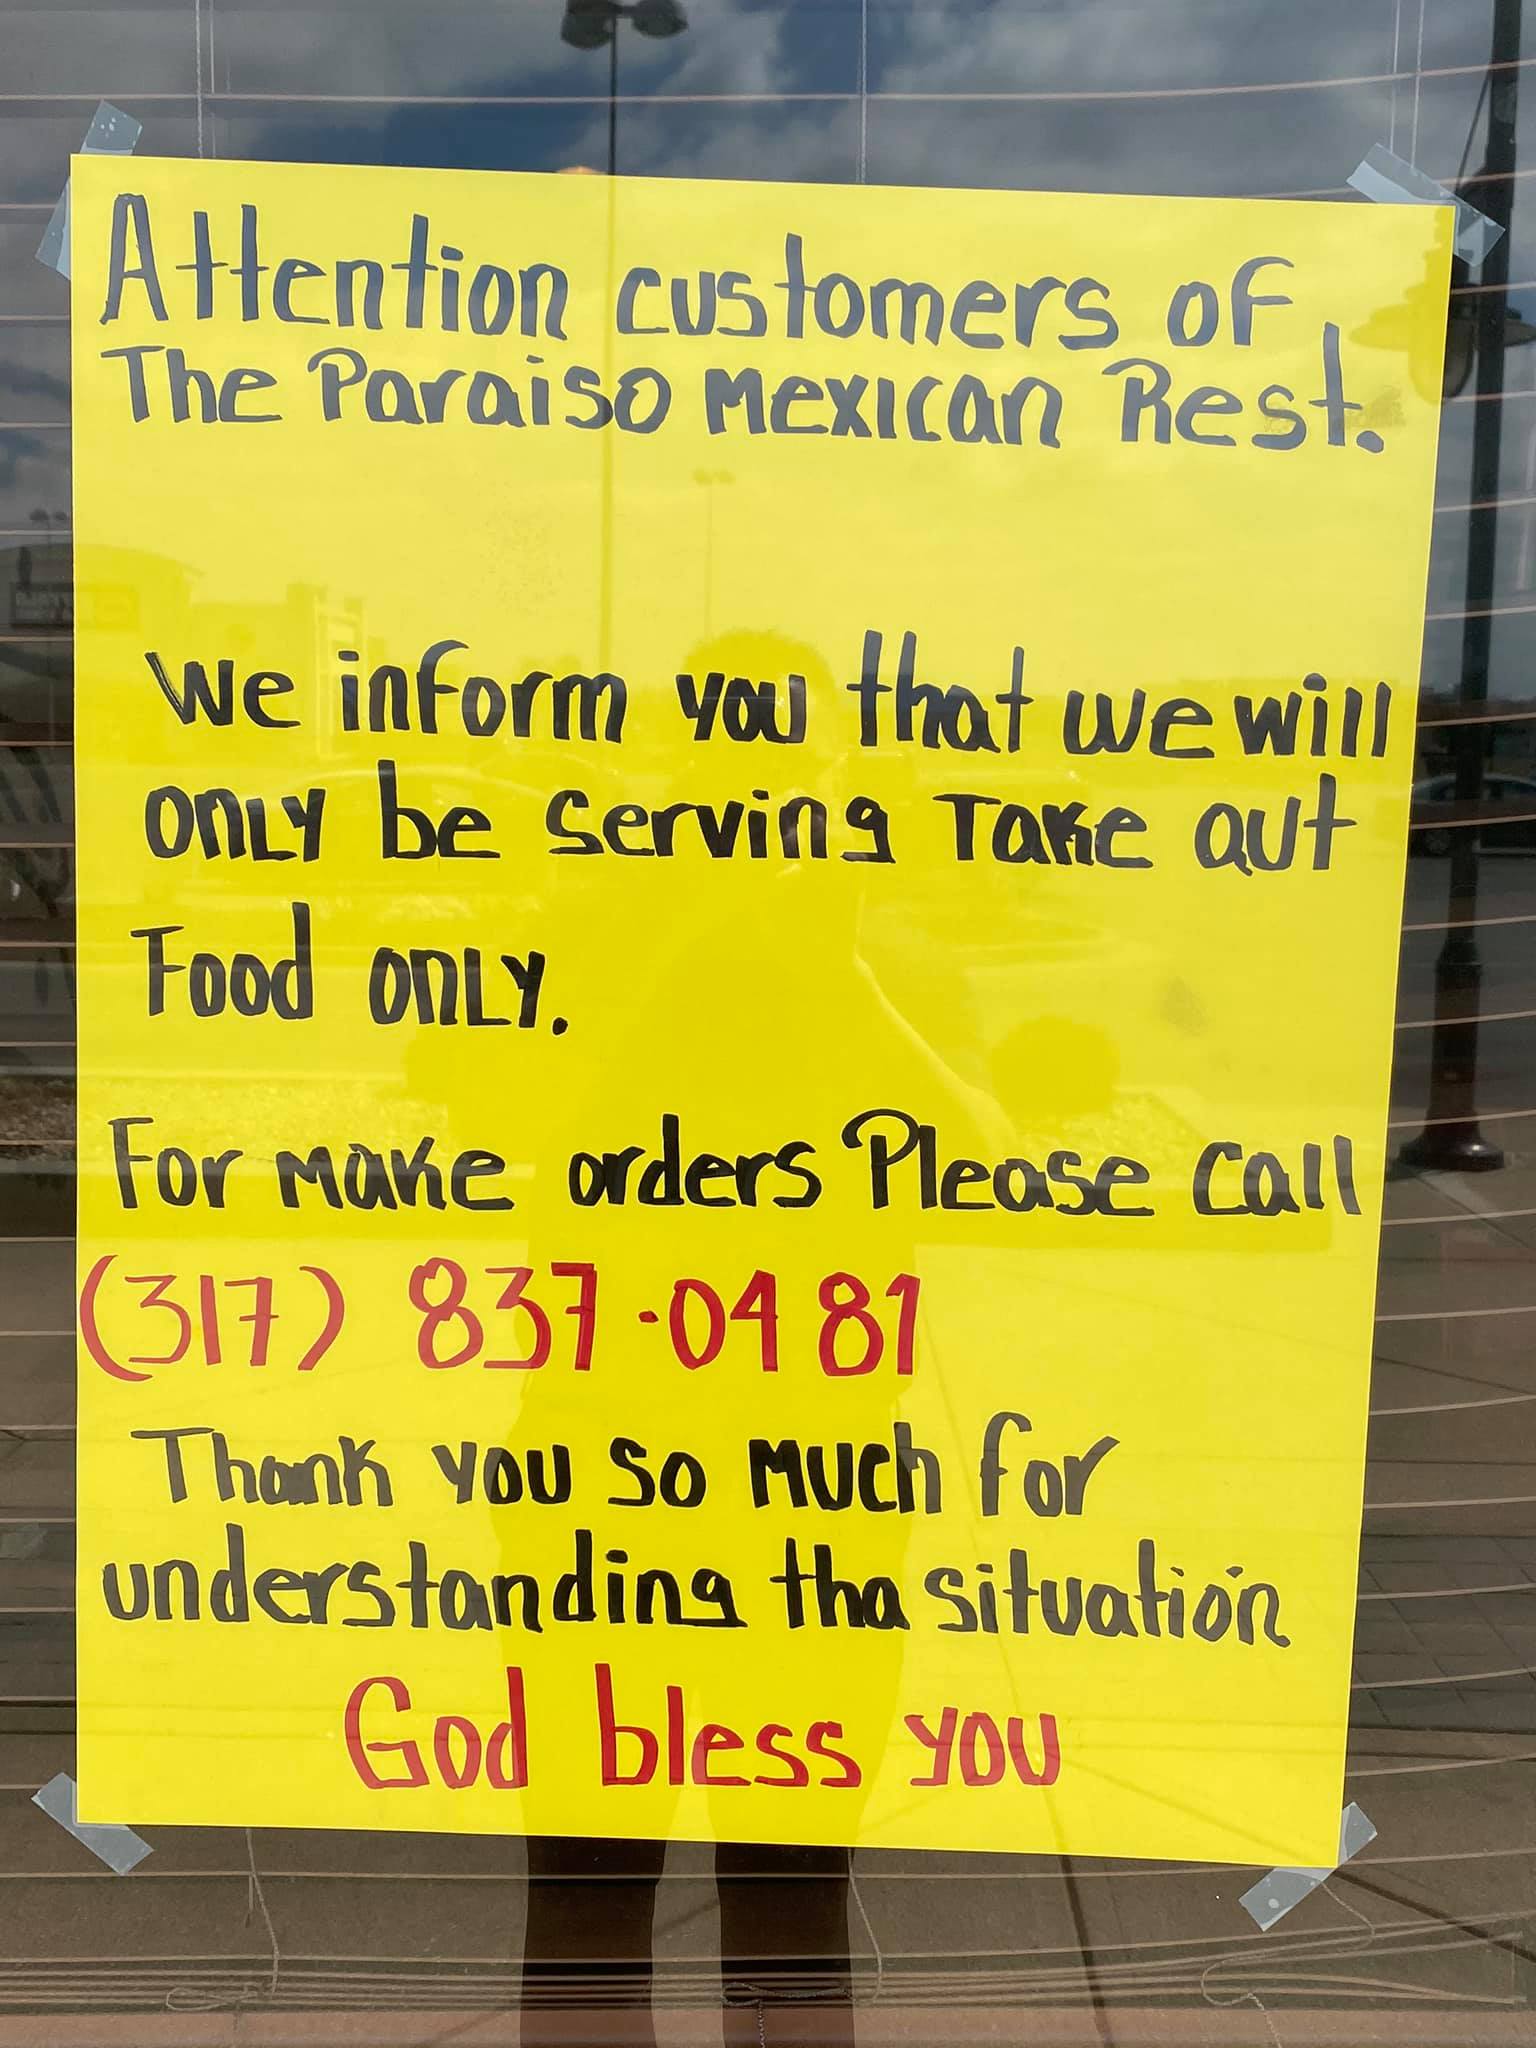 Attention customers of
The Paraiso Mexican Rest.
We inform you that we will
ONLY be serving Take out
Food ONLY.
For make orders Please call
(317) 837-0481
Thank you so much for
understanding tha situation
God bless you